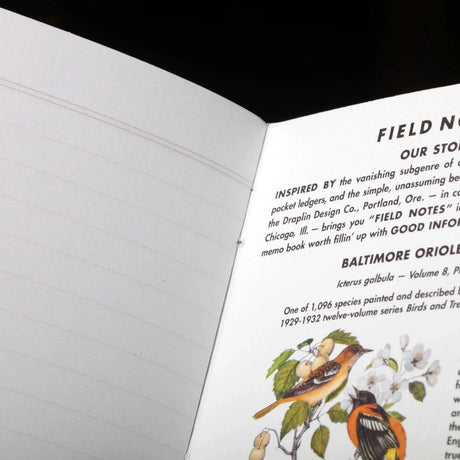 FIELD NO
OUR STO
INSPIRED BY the vanishing subgenre of
pocket ledgers, and the simple, unassuming be
the Draplin Design Co., Portland, Ore. — in c
Chicago, Ill. — brings you "FIELD NOTES"
memo book worth fillin' up with GOOD INFOR
BALTIMORE ORIOLE
Icterus galbula — Volume 8, P
One of 1,096 species painted and described
1929-1932 twelve-volume series Birds and Tre
of
wee
and
the
Eng
true